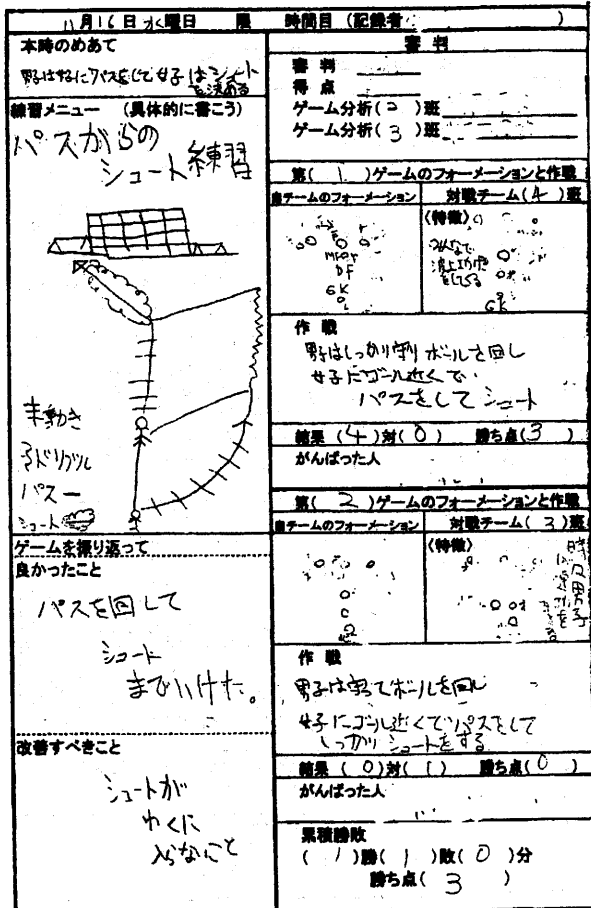 11月16日水曜日 限 時間目(記録者 )
本時のめあて
男は女子にパスをして女子はシュート
を決める
練習メニュー (具体的に書こう)
パスからの
シュート練習
動き
ドリブル
パス
シュート
ゲームを振り返って
良かったこと
パスを回して
シュート
までいけた。
改善すべきこと
シュートが
わくに
入らないこと
審判
審判
得点
ゲーム分析(2)班
ゲーム分析(3)班
第(1)ゲームのフォーメーションと作戦
自チームのフォーメーション 対戦チーム(4)班
〈特徴〉
みんなで
MF
DF
GK
GK
作戦
男子はしっかり守りボールを回し
女子にゴール近くで
パスをしてシュート
結果(4)対(0) 勝ち点(3)
がんばった人
第(2)ゲームのフォーメーションと作戦
自チームのフォーメーション 対戦チーム(3)班
〈特徴〉
男子
作戦
男子は守ってボールを回し
女子にゴール近くでパスをして
しっかりシュートをする
結果(0)対(1) 勝ち点(0)
がんばった人
累積勝敗
(1)勝(1)敗(0)分
勝ち点(3)